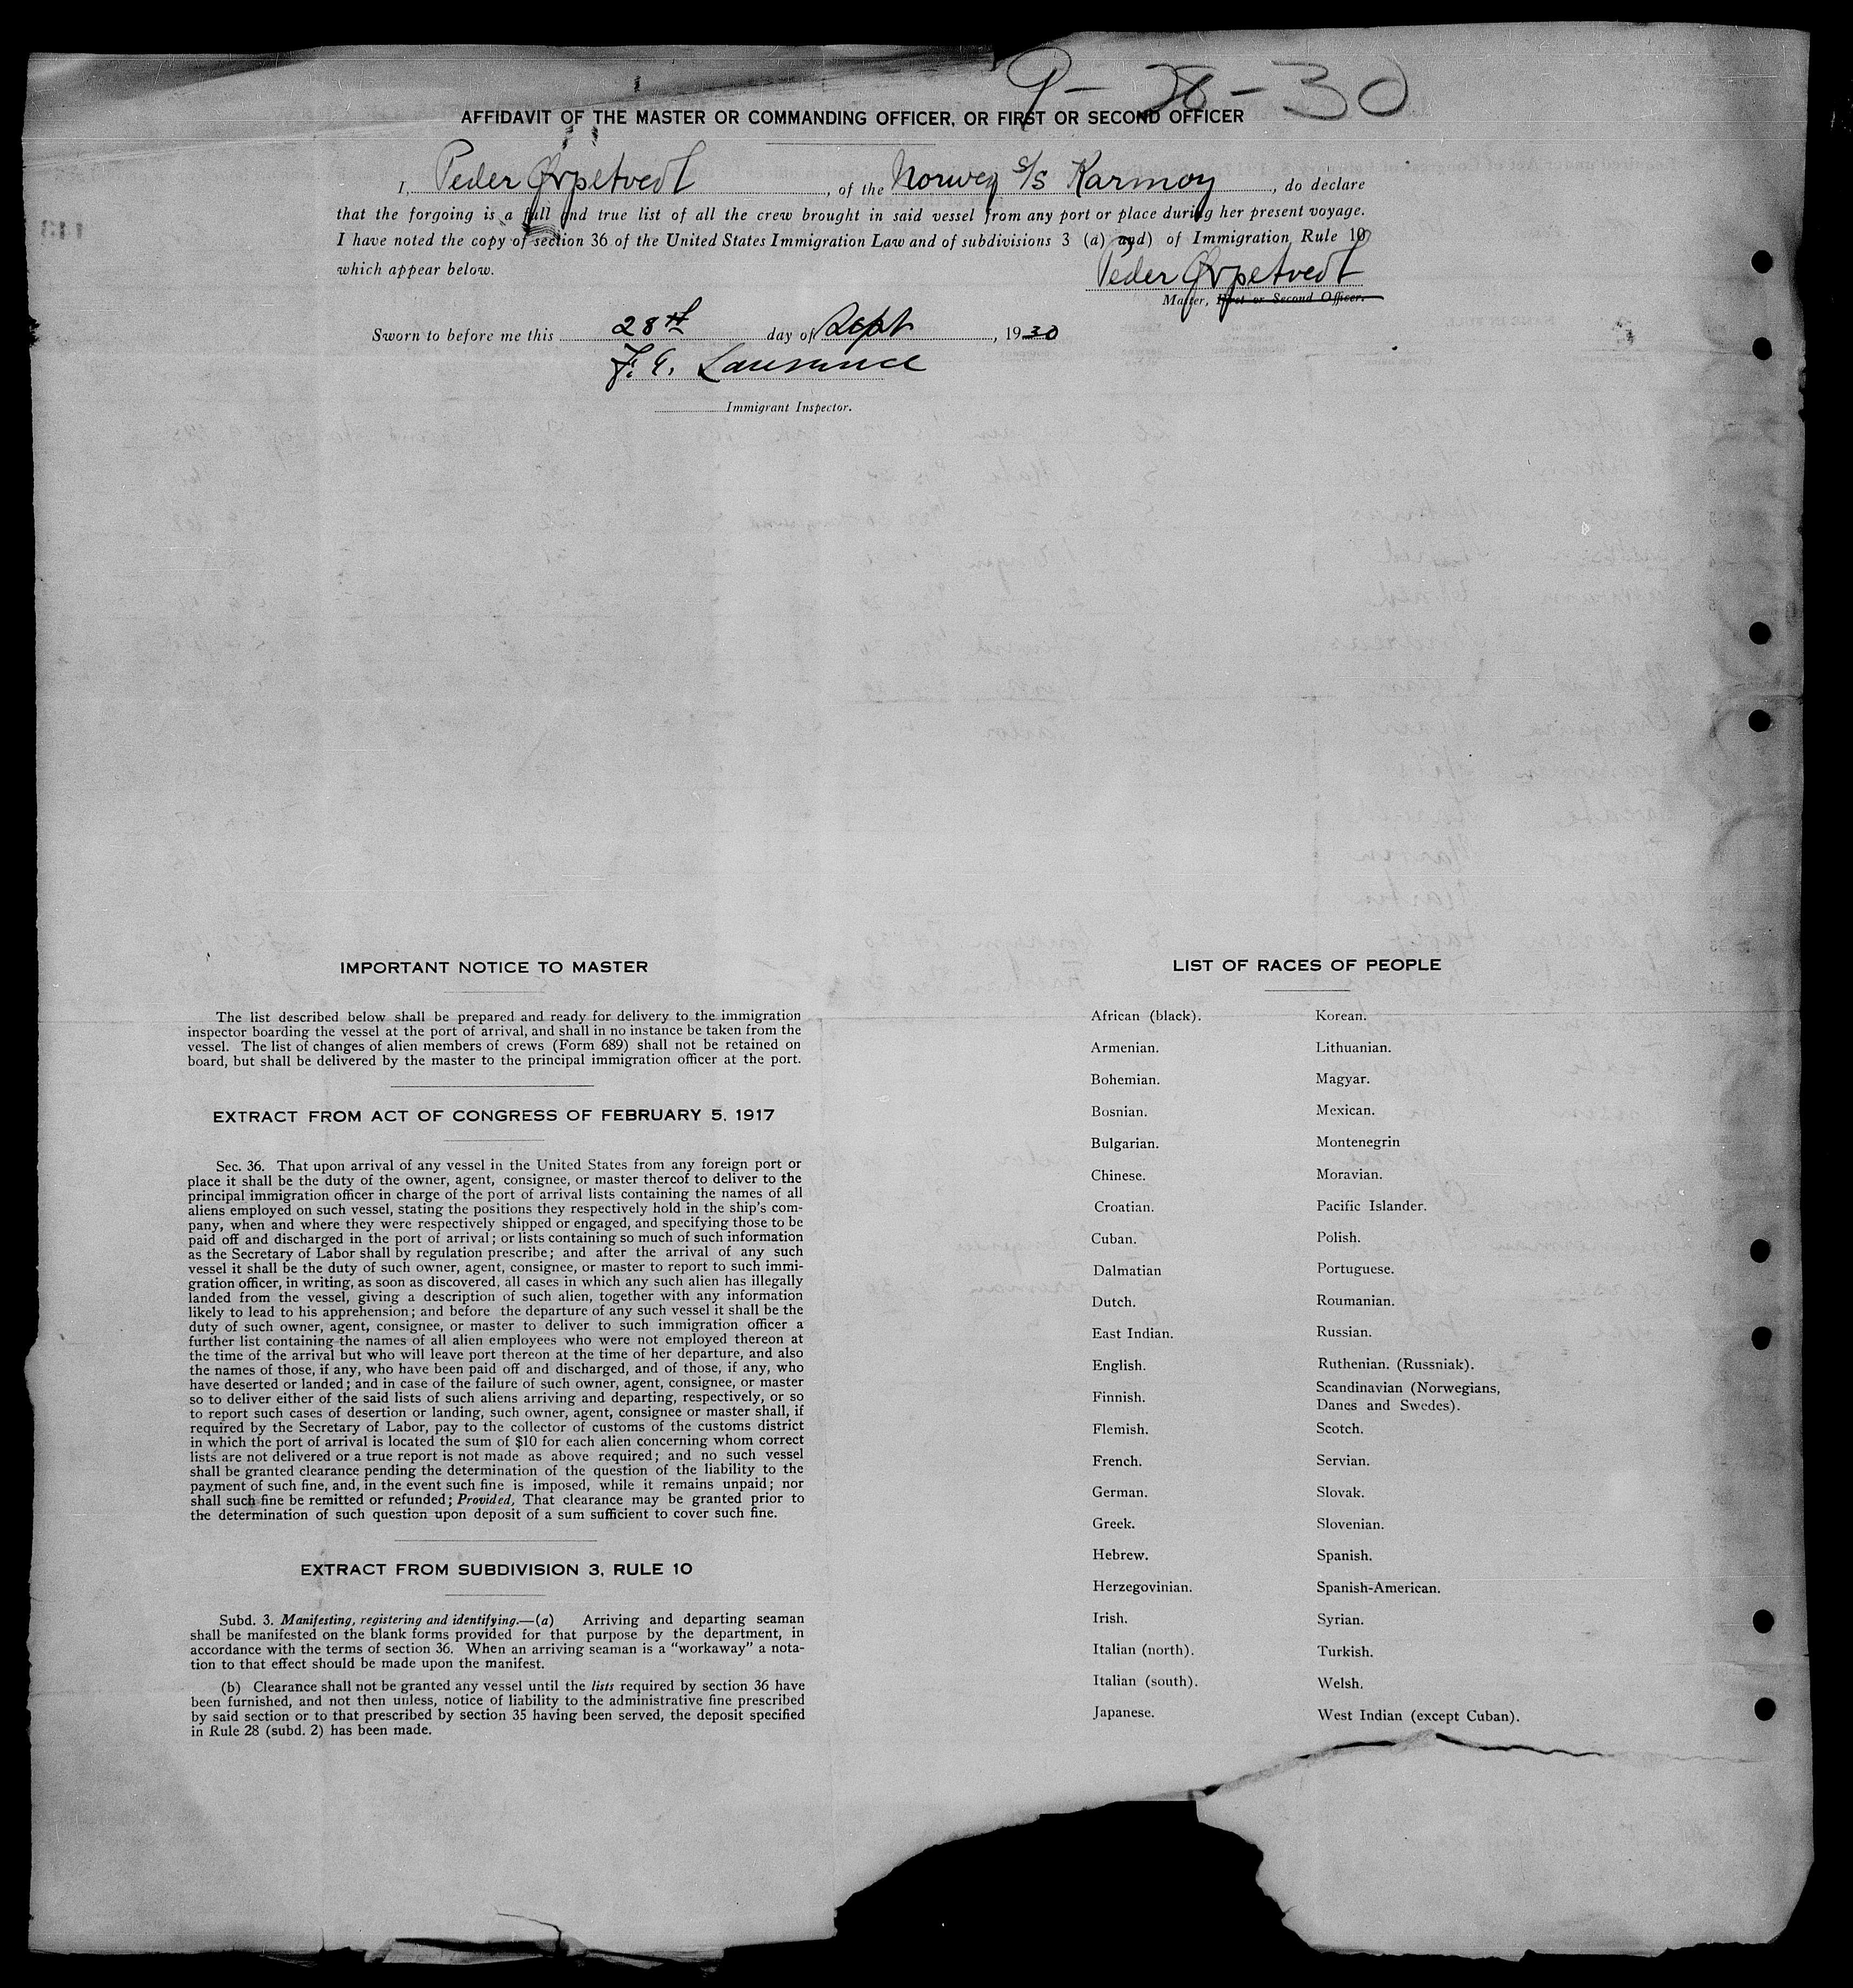 9-28-30
AFFIDAVIT OF THE MASTER OR COMMANDING OFFICER, OR FIRST OR SECOND OFFICER
I, Peder Ørpetvedt, of the Norweg s/s Karmoy, do declare
that the forgoing is a full and true list of all the crew brought in said vessel from any port or place during her present voyage.
I have noted the copy of section 36 of the United States Immigration Law and of subdivisions 3 (a) and) of Immigration Rule 10
which appear below.
Peder Ørpetvedt
Master, First or Second Officer.
Sworn to before me this 28th day of Sept, 1930
Immigrant Inspector.
IMPORTANT NOTICE TO MASTER
The list described below shall be prepared and ready for delivery to the immigration
inspector boarding the vessel at the port of arrival, and shall in no instance be taken from the
vessel. The list of changes of alien members of crews (Form 689) shall not be retained on
board, but shall be delivered by the master to the principal immigration officer at the port.
EXTRACT FROM ACT OF CONGRESS OF FEBRUARY 5, 1917
Sec. 36. That upon arrival of any vessel in the United States from any foreign port or
place it shall be the duty of the owner, agent, consignee, or master thereof to deliver to the
principal immigration officer in charge of the port of arrival lists containing the names of all
aliens employed on such vessel, stating the positions they respectively hold in the ship's com-
pany, when and where they were respectively shipped or engaged, and specifying those to be
paid off and discharged in the port of arrival; or lists containing so much of such information
as the Secretary of Labor shall by regulation prescribe; and after the arrival of any such
vessel it shall be the duty of such owner, agent, consignee, or master to report to such immi-
gration officer, in writing, as soon as discovered, all cases in which any such alien has illegally
landed from the vessel, giving a description of such alien, together with any information
likely to lead to his apprehension; and before the departure of any such vessel it shall be the
duty of such owner, agent, consignee, or master to deliver to such immigration officer a
further list containing the names of all alien employees who were not employed thereon at
the time of the arrival but who will leave port thereon at the time of her departure, and also
the names of those, if any, who have been paid off and discharged, and of those, if any, who
have deserted or landed; and in case of the failure of such owner, agent, consignee, or master
so to deliver either of the said lists of such aliens arriving and departing, respectively, or so
to report such cases of desertion or landing, such owner, agent, consignee or master shall, if
required by the Secretary of Labor, pay to the collector of customs of the customs district
in which the port of arrival is located the sum of $10 for each alien concerning whom correct
lists are not delivered or a true report is not made as above required; and no such vessel
shall be granted clearance pending the determination of the question of the liability to the
payment of such fine, and, in the event such fine is imposed, while it remains unpaid; nor
shall such fine be remitted or refunded; Provided, That clearance may be granted prior to
the determination of such question upon deposit of a sum sufficient to cover such fine.
EXTRACT FROM SUBDIVISION 3, RULE 10
Subd. 3. Manifesting, registering and identifying.—(a) Arriving and departing seaman
shall be manifested on the blank forms provided for that purpose by the department, in
accordance with the terms of section 36. When an arriving seaman is a "workaway" a nota-
tion to that effect should be made upon the manifest.
(b) Clearance shall not be granted any vessel until the lists required by section 36 have
been furnished, and not then unless, notice of liability to the administrative fine prescribed
by said section or to that prescribed by section 35 having been served, the deposit specified
in Rule 28 (subd. 2) has been made.
LIST OF RACES OF PEOPLE
African (black).
Armenian.
Bohemian.
Bosnian.
Bulgarian.
Chinese.
Croatian.
Cuban.
Dalmatian
Dutch.
East Indian.
English.
Finnish.
Flemish.
French.
German.
Greek.
Hebrew.
Herzegovinian.
Irish.
Italian (north).
Italian (south).
Japanese.
Korean.
Lithuanian.
Magyar.
Mexican.
Montenegrin
Moravian.
Pacific Islander.
Polish.
Portuguese.
Roumanian.
Russian.
Ruthenian. (Russniak).
Scandinavian (Norwegians,
Danes and Swedes).
Scotch.
Servian.
Slovak.
Slovenian.
Spanish.
Spanish-American.
Syrian.
Turkish.
Welsh.
West Indian (except Cuban).